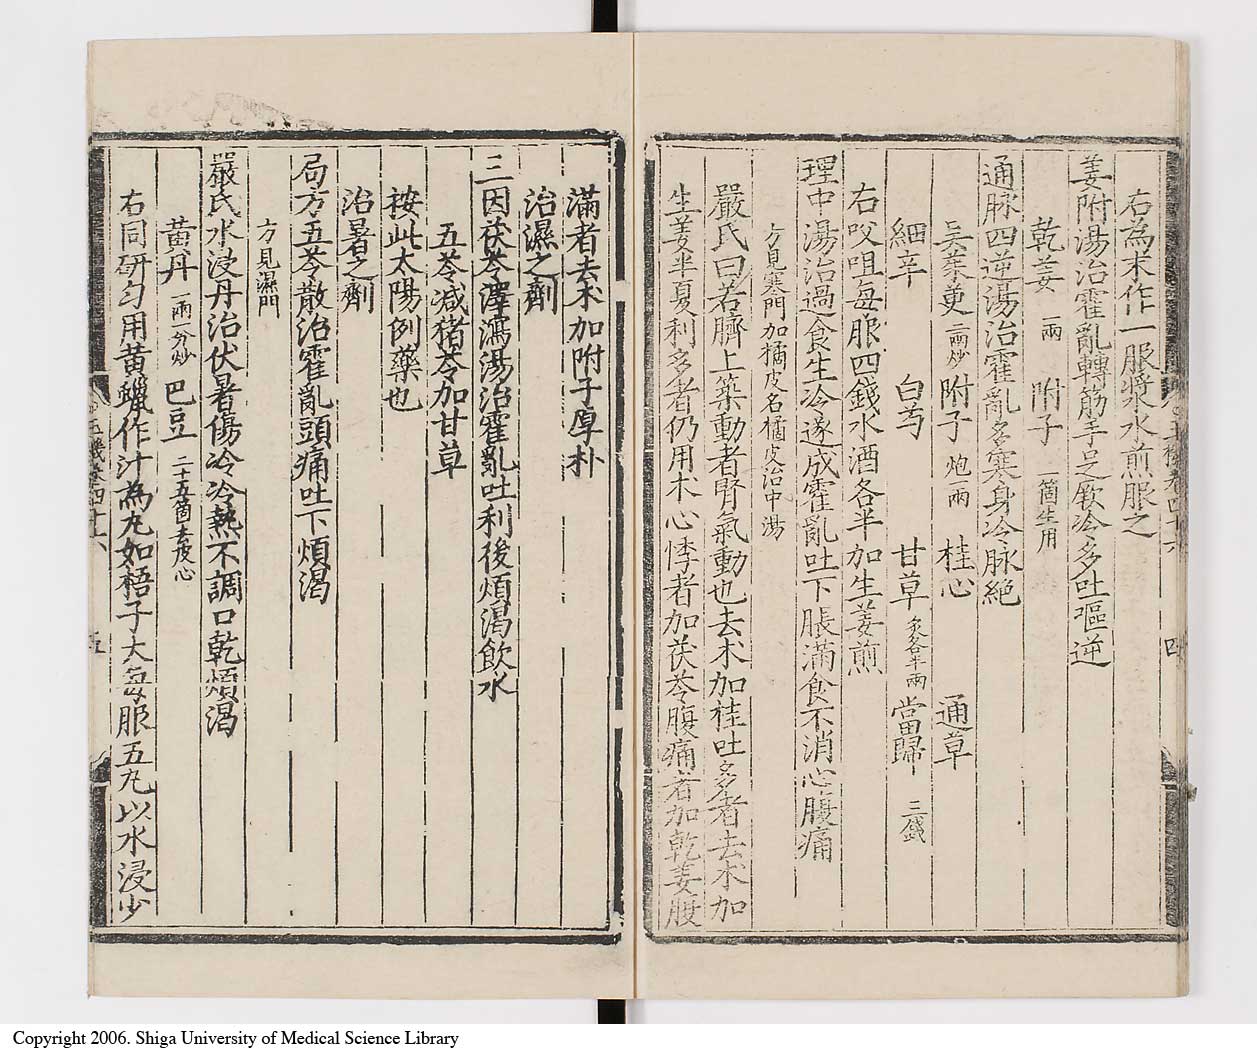 右為末作一服漿水煎服之
姜附湯治霍亂轉筋手足厥冷多吐嘔逆
乾姜一兩 附子一箇生用
通脉四逆湯治霍亂多寒身冷脉絶
吳茱萸二兩炒 附子炮一兩 桂心 通草
細辛 白芍 甘草炙各半兩 當歸三錢
右㕮咀每服四錢水酒各半加生姜煎
理中湯治過食生冷遂成霍亂吐下脹滿食不消心腹痛
方見寒門加橘皮名橘皮治中湯
嚴氏曰若臍上築動者腎氣動也去术加桂吐多者去术加
生姜半夏利多者仍用术心悸者加茯苓腹痛者加乾姜腹
四
滿者去术加附子厚朴
治濕之劑
三因茯苓澤瀉湯治霍亂吐利後煩渴飲水
五苓减猪苓加甘草
按此太陽例藥也
治暑之劑
局方五苓散治霍亂頭痛吐下煩渴
方見濕門
嚴氏水浸丹治伏暑傷冷冷熱不調口乾煩渴
黄丹一兩一分炒 巴豆二十五箇去皮心
右同研匀用黄蠟作汁為丸如梧子大每服五丸以水浸少
五
Copyright 2006. Shiga University of Medical Science Library